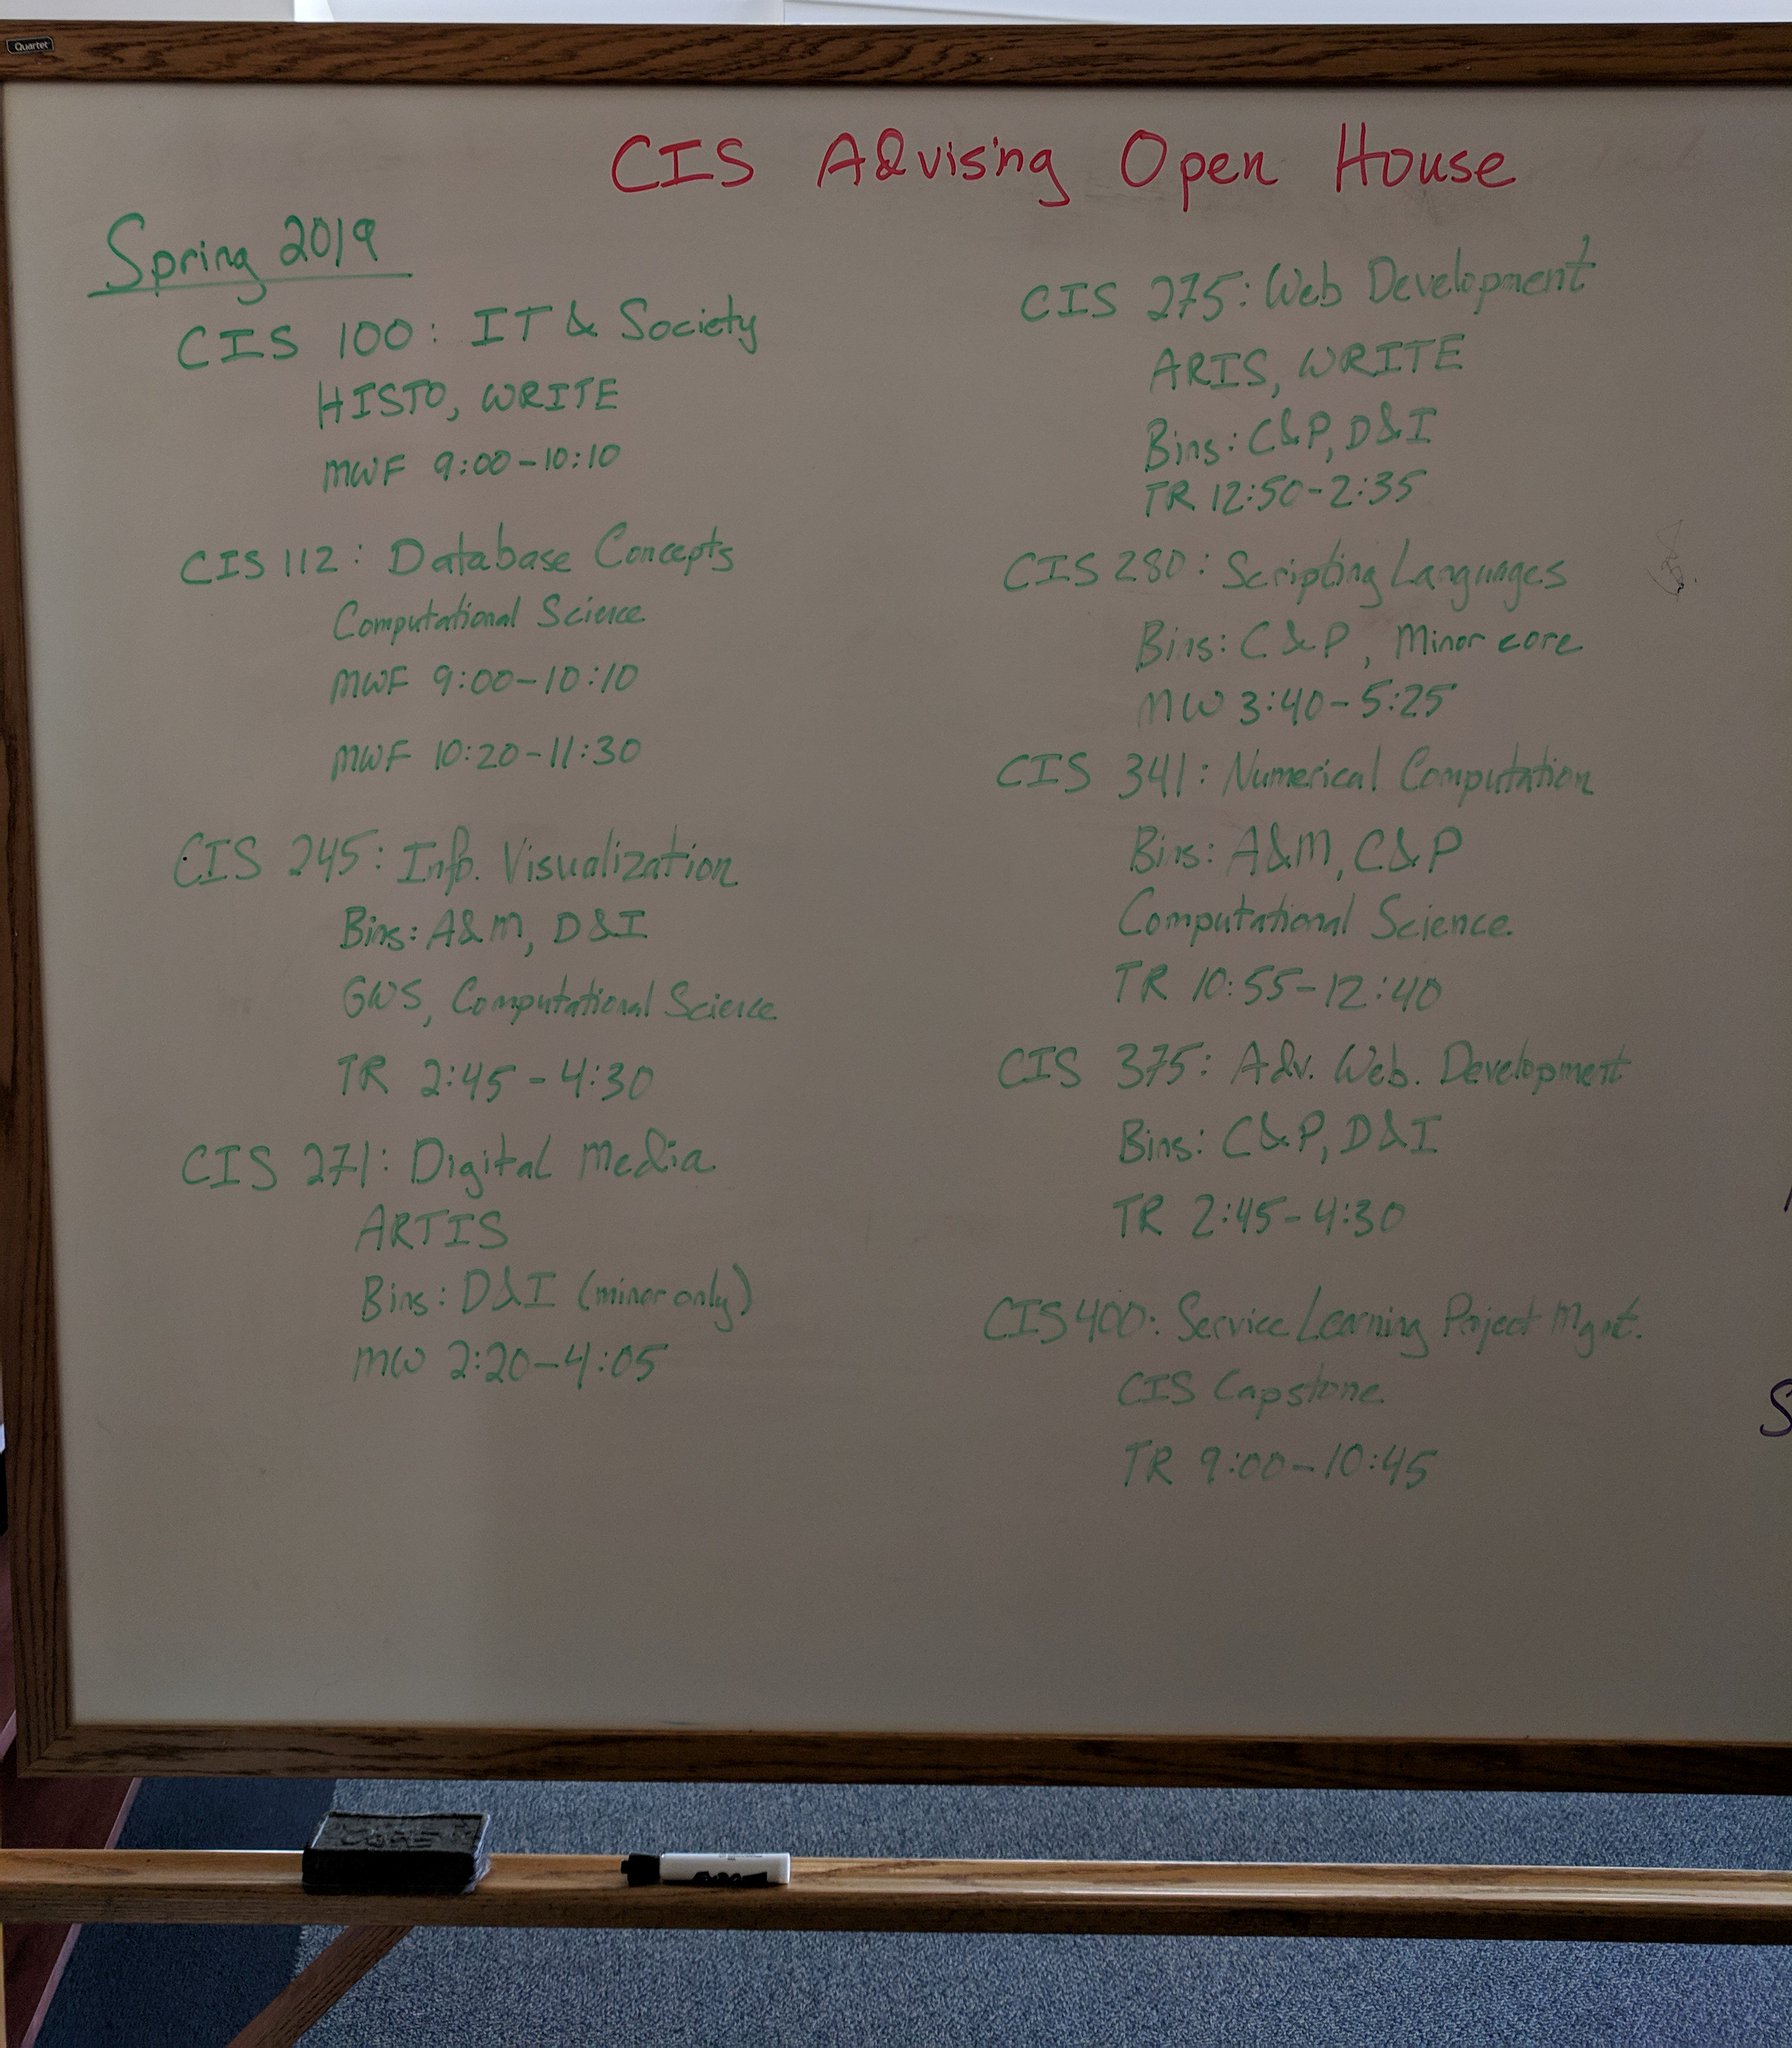 Quartet
CIS Advising Open House
Spring 2019
CIS 100: IT & Society
HISTO, WRITE
MWF 9:00-10:10
CIS 112: Database Concepts
Computational Science
MWF 9:00-10:10
MWF 10:20-11:30
CIS 245: Info. Visualization
Bins: A&M, D&I
GWS, Computational Science
TR 2:45-4:30
CIS 271: Digital Media
ARTIS
Bins: D&I (minor only)
MW 2:20-4:05
CIS 275: Web Development
ARIS, WRITE
Bins: C&P, D&I
TR 12:50-2:35
CIS 280: Scripting Languages
Bins: C&P, Minor core
MW 3:40-5:25
CIS 341: Numerical Computation
Bins: A&M, C&P
Computational Science
TR 10:55-12:40
CIS 375: Adv. Web. Development
Bins: C&P, D&I
TR 2:45-4:30
CIS 400: Service Learning Project Mgmt.
CIS Capstone
TR 9:00-10:45
S